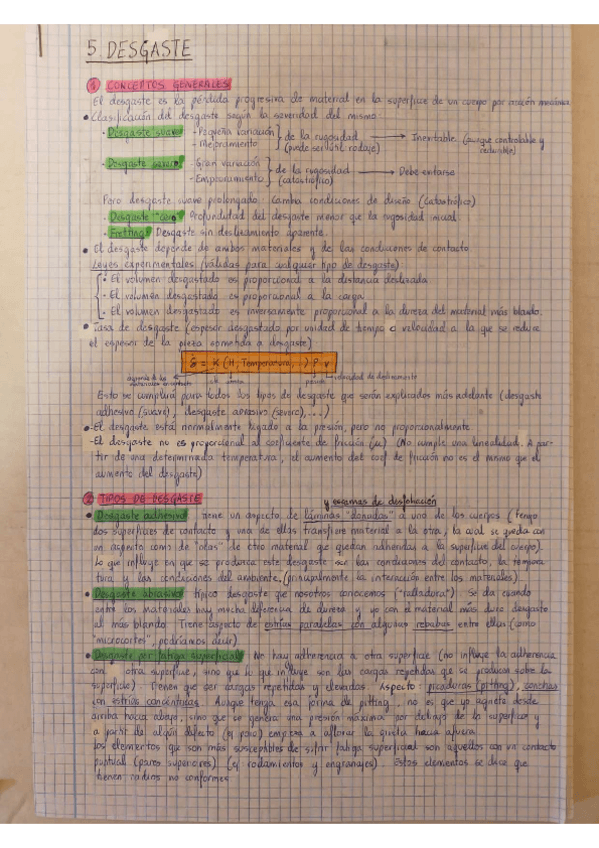 5. DESGASTE
① CONCEPTOS GENERALES
El desgaste es la pérdida progresiva de material en la superficie de un cuerpo por acción mecánica
• Clasificación del desgaste según la severidad del mismo:
- Desgaste suave - Pequeña variación } de la rugosidad → Inevitable. (aunque controlable y
- Mejoramiento (puede ser útil: rodaje) reducible)
- Desgaste severo - Gran variación } de la rugosidad → Debe evitarse
- Empeoramiento (catastrófico)
Pero desgaste suave prolongado: cambia condiciones de diseño (catastrófico)
- Desgaste "cero": Profundidad del desgaste menor que la rugosidad inicial.
- Fretting: Desgaste sin deslizamiento aparente.
• El desgaste depende de ambos materiales y de las condiciones de contacto.
Leyes experimentales (válidas para cualquier tipo de desgaste)
• El volumen desgastado es proporcional a la distancia deslizada
- El volumen desgastado es proporcional a la carga
- El volumen desgastado es inversamente proporcional a la dureza del material más blando.
• Tasa de desgaste (espesor desgastado por unidad de tiempo o velocidad a la que se reduce
el espesor de la pieza sometida a desgaste)
= K (H, Temperatura, ...) P v
depende de los materiales en contacto
presión velocidad de deslizamiento
Esto se cumplirá para todos los tipos de desgaste que serán explicados más adelante (desgaste
adhesivo (suave), desgaste abrasivo (severo),...)
• El desgaste está normalmente ligado a la presión, pero no proporcionalmente
- El desgaste no es proporcional al coeficiente de fricción (μ) (No cumple una linealidad. A par-
tir de una determinada temperatura, el aumento del coef. de fricción no es el mismo que el
aumento del desgaste)
② TIPOS DE DESGASTE
y escamas de desfoliación
• Desgaste adhesivo: tiene un aspecto de láminas "donadas" a uno de los cuerpos (tengo
dos superficies de contacto y una de ellas transfiere material a la otra, la cual se queda con
un aspecto como de "olas" de otro material que quedan adheridas a la superficie del cuerpo).
Lo que influye en que se produzca este desgaste son las condiciones del contacto, la tempera
tura y las condiciones del ambiente. (principalmente la interacción entre los materiales)
• Desgaste abrasivo: típico desgaste que nosotros conocemos ("ralladura"). Se da cuando
entre los materiales hay mucha diferencia de dureza y yo con el material más duro desgasto
al más blando. Tiene aspecto de estrías paralelas con algunas rebabas entre ellas (como
"microcortes", podríamos decir)
• Desgaste por fatiga superficial: No hay adherencia a otra superficie (no influye la adherencia
con otra superficie, sino que lo que influye son las cargas repetidas que se producen sobre la
superficie). Tienen que ser cargas repetidas y elevadas. Aspecto: picaduras (pitting), conchas
con estrías concéntricas. Aunque tenga esa forma de pitting, no es que yo agriete desde
arriba hacia abajo, sino que se genera una presión máxima por debajo de la superficie y
a partir de algún defecto (ej. poro) empieza a aflorar la grieta hacia afuera.
Los elementos que son más susceptibles de sufrir fatiga superficial son aquellos con un contacto
puntual (pares superiores) (ej. rodamientos y engranajes). Estos elementos se dice que
tienen radios no conformes